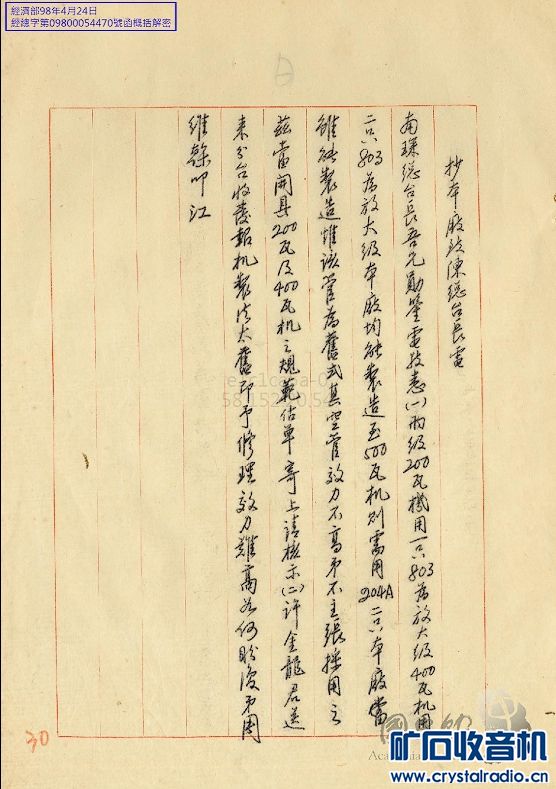 經濟部98年4月24日
經總字第09800054470號函概括解密
抄本廠致陳総台長電
南琛総台長吾兄勛鑒電敬悉(一)所級200瓦機用一只803為放大級400瓦机用
二只803為放大級本廠均能製造至500瓦机則需用204A二只本廠當
雖能製造惟該管為舊式真空管效力不高弟不主張採用之
茲當開具200瓦及400瓦机之規範估單寄上請核示(二)許金龍君送
來分台收發報机製法太舊即予修理效力難高為何盼復弟周
維幹叩江
30
矿石收音机
www.crystalradio.cn